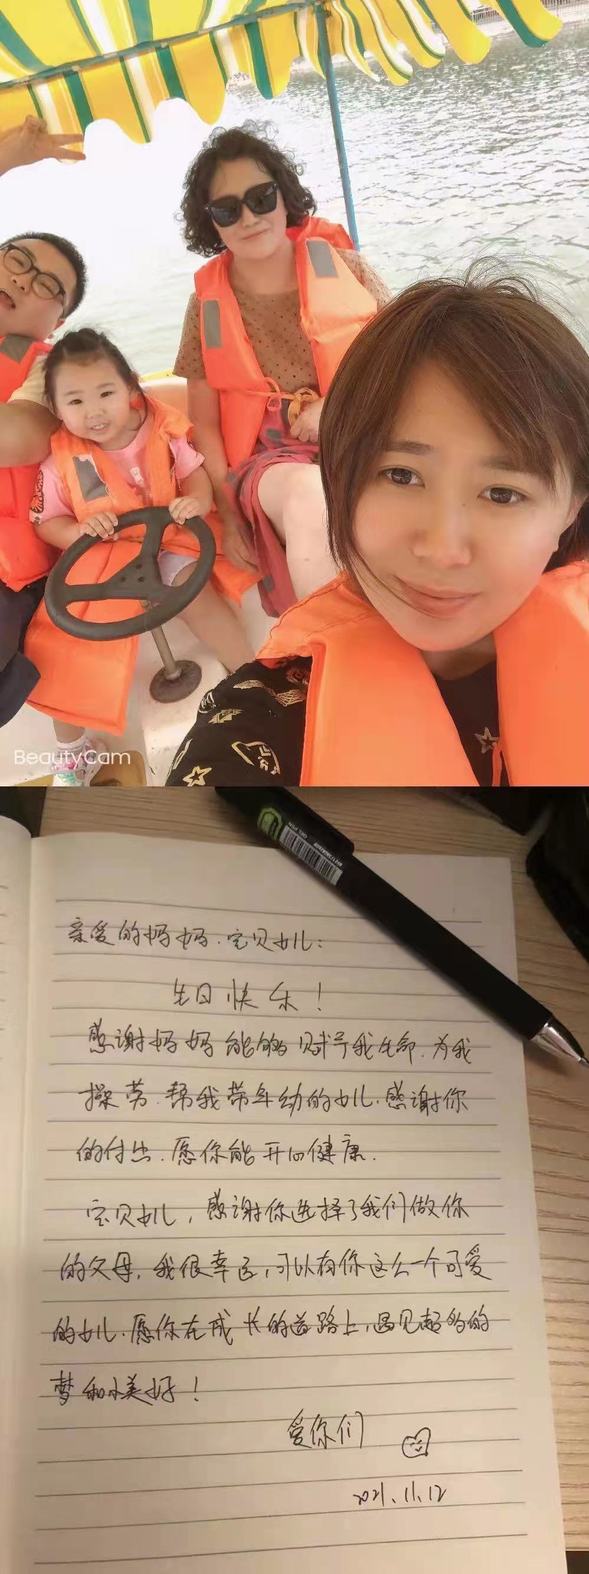 BeautyCam
亲爱的妈妈.宝贝女儿：
生日快乐！
感谢妈妈能够赋予我生命.为我
操劳.帮我带年幼的女儿.感谢你
的付出.愿你能开心健康.
宝贝女儿，感谢你选择了我们做你
的父母，我很幸运，可以有你这么一个可爱
的女儿.愿你在成长的道路上，遇见超多的
梦和小美好！
爱你们
2021.11.12